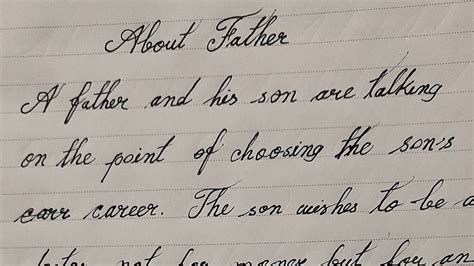 About Father
A father and his son are talking
on the point of choosing the son's
carr career. The son wishes to be a
not for money but for an